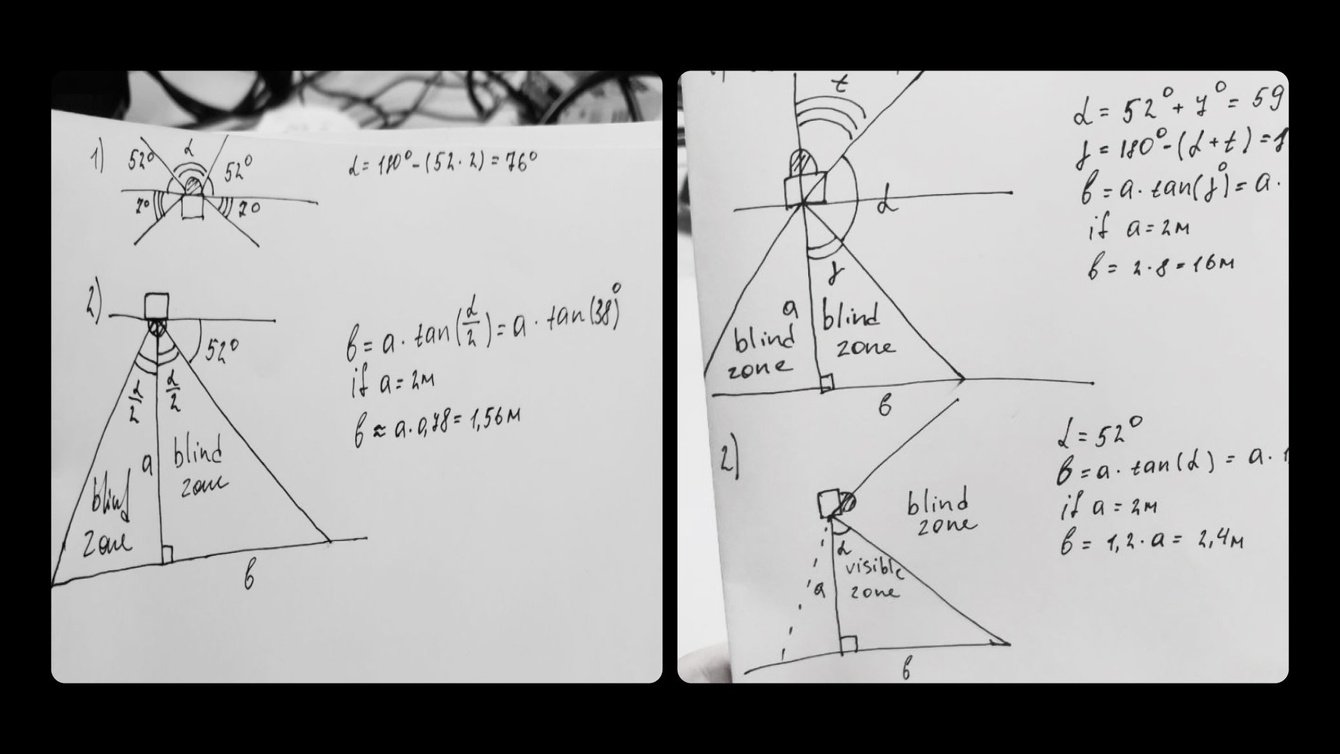 1)
52° α 52°
7° 7°
α = 180° - (52 · 2) = 76°
2)
52°
α/2 α/2
a
blind zone
blind zone
в
в = a · tan(α/2) = a · tan(38)°
if a = 2м
в ≈ a · 0,78 = 1,56м
t
α
γ
a
blind zone
blind zone
в
α = 52° + 7° = 59
γ = 180° - (α + t) =
в = a · tan(γ°) = a ·
if a = 2м
в = 2 · 8 = 16м
2)
blind zone
α
visible zone
a
в
α = 52°
в = a · tan(α) = a ·
if a = 2м
в = 1,2 · a = 2,4м